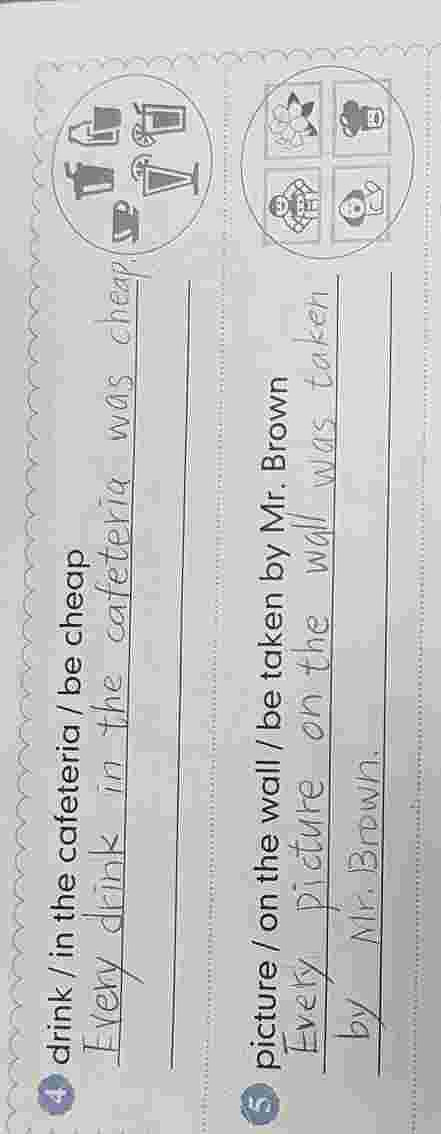 4 drink / in the cafeteria / be cheap
Every drink in the cafeteria was cheap.
5 picture / on the wall / be taken by Mr. Brown
Every picture on the wall was taken
by Mr. Brown.